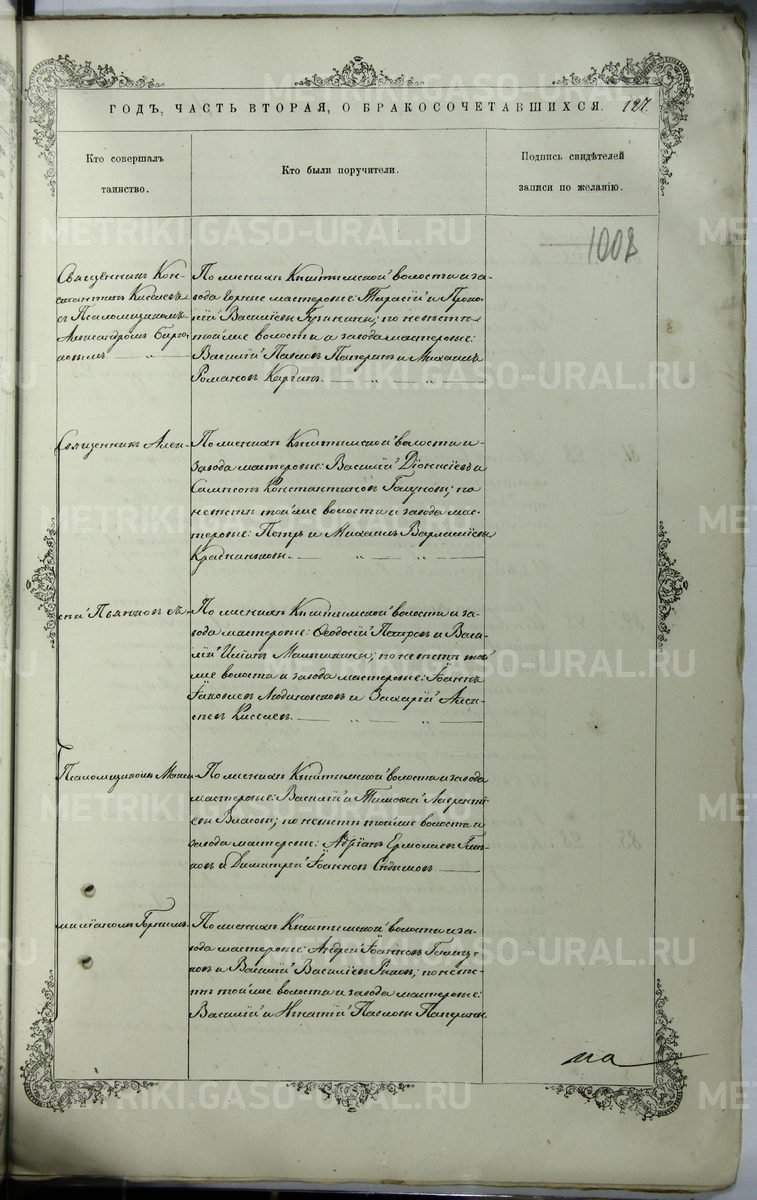 METRIKI.GASO-URAL.RU
ГОДЪ, ЧАСТЬ ВТОРАЯ, О БРАКОСОЧЕТАВШИХСЯ. 127.
Кто совершалъ
таинство.
Кто были поручители.
Подпись свидѣтелей
записи по желанію.
1008
Священникъ Кон-
стантинъ Киселевъ
съ Псаломщикомъ
Александромъ
По женихѣ Кыштымской волости и за-
вода горные мастеровые: Тарасій и Проко-
пій Васильевы; по невѣстѣ
той же волости и завода мастеровые:
Василій Павловъ Паперинъ и Михаилъ
Романовъ
Священникъ Алек-
По женихѣ Кыштымской волости и
завода мастеровые: Василій Діонисіевъ и
Сампсонъ Константиновъ Голуновы; по
невѣстѣ той же волости и завода мас-
теровые: Петръ и Михаилъ Варламіевы
сѣй Пьянковъ съ
По женихѣ Кыштымской волости и за-
вода мастеровые: Ѳеодосій Петровъ и Васи-
лій Малышкины; по невѣстѣ той
же волости и завода мастеровые: Іоаннъ
Іаковлевъ и Захарій Алек-
сѣевъ Киселевъ.
Псаломщикомъ Макси-
По женихѣ Кыштымской волости и завода
мастеровые: Василій и Тимоѳей Лаврентi-
евы Власовы; по невѣстѣ той же волости и
завода мастеровые: Адріанъ Ермолаевъ
и Димитрій Іоанновъ Сѣдышовъ
миліаномъ Горнымъ.
По женихѣ Кыштымской волости и за-
вода мастеровые: Андрей Іоанновъ
и Василій Васильевъ; по невѣс-
тѣ той же волости и завода мастеровые:
Василій и Игнатій Павловы Паперины.
на